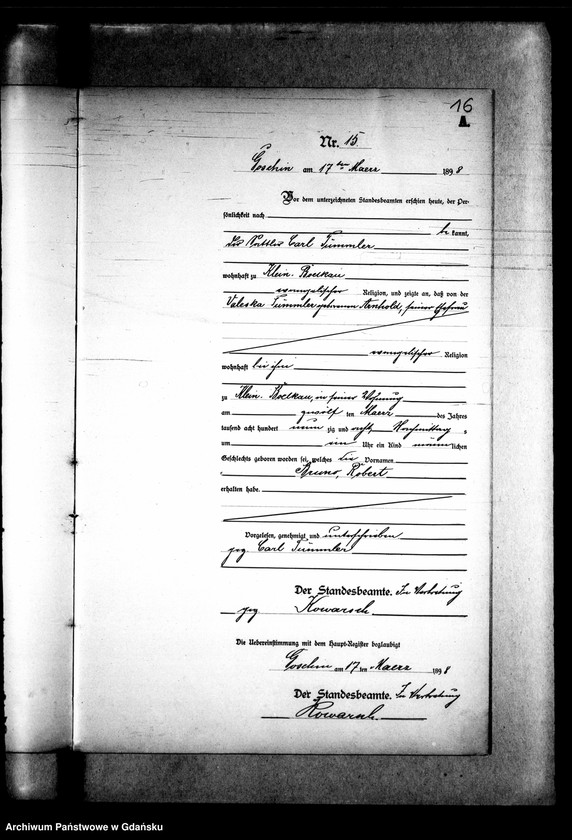 16
A.
Nr. 15.
Goschin am 17ten Maerz 1898
Vor dem unterzeichneten Standesbeamten erschien heute, der Per-
sönlichkeit nach
be kannt,
der Sattler Carl Tümmler
wohnhaft zu Klein. Boelkau
evangelischer Religion, und zeigte an, daß von der
Valeska Tümmler geborenen Arnhold, seiner Ehefrau
evangelischer Religion
wohnhaft bei ihm
zu Klein. Boelkau, in seiner Wohnung
am zwölf ten Maerz des Jahres
tausend acht hundert neun zig und acht, Nachmittag s
um ein Uhr ein Kind männ lichen
Geschlechts geboren worden sei, welches die Vornamen
Bruno, Robert
erhalten habe.
Vorgelesen, genehmigt und unterschrieben
gez Carl Tümmler
Der Standesbeamte. In Vertretung
gez Kowarsch
Die Uebereinstimmung mit dem Haupt-Register beglaubigt
Goschin am 17 ten Maerz 1898
Der Standesbeamte. In Vertretung
Kowarsch.
Archiwum Państwowe w Gdańsku